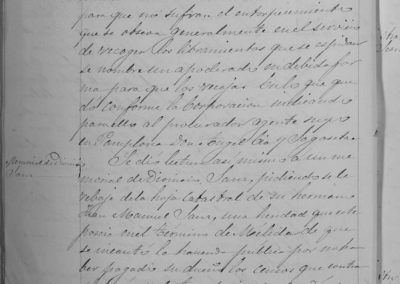 para que no sufran el entorpecimiento
que se observa generalmente en el servicio
de recoger los libramientos que se espidan
se nombre un apoderado en debida for
ma para que los recoja. En lo que que
do conforme la Corporacion
para ello al procurador agente suyo
en Pamplona Don Angel Cia y Sagaseta.
Memorial de Dionisio
Sanz
Se dio lectura asi mismo a un me
morial de Dionisio Sanz, pidiendo se le
rebaje de la hoja Catastral de su hermano
Juan Manuel Sanz, una heredad que este
poseia en el termino de de que
se incautó la hacienda publica por no ha
ber pagado su dueño los censos que contra